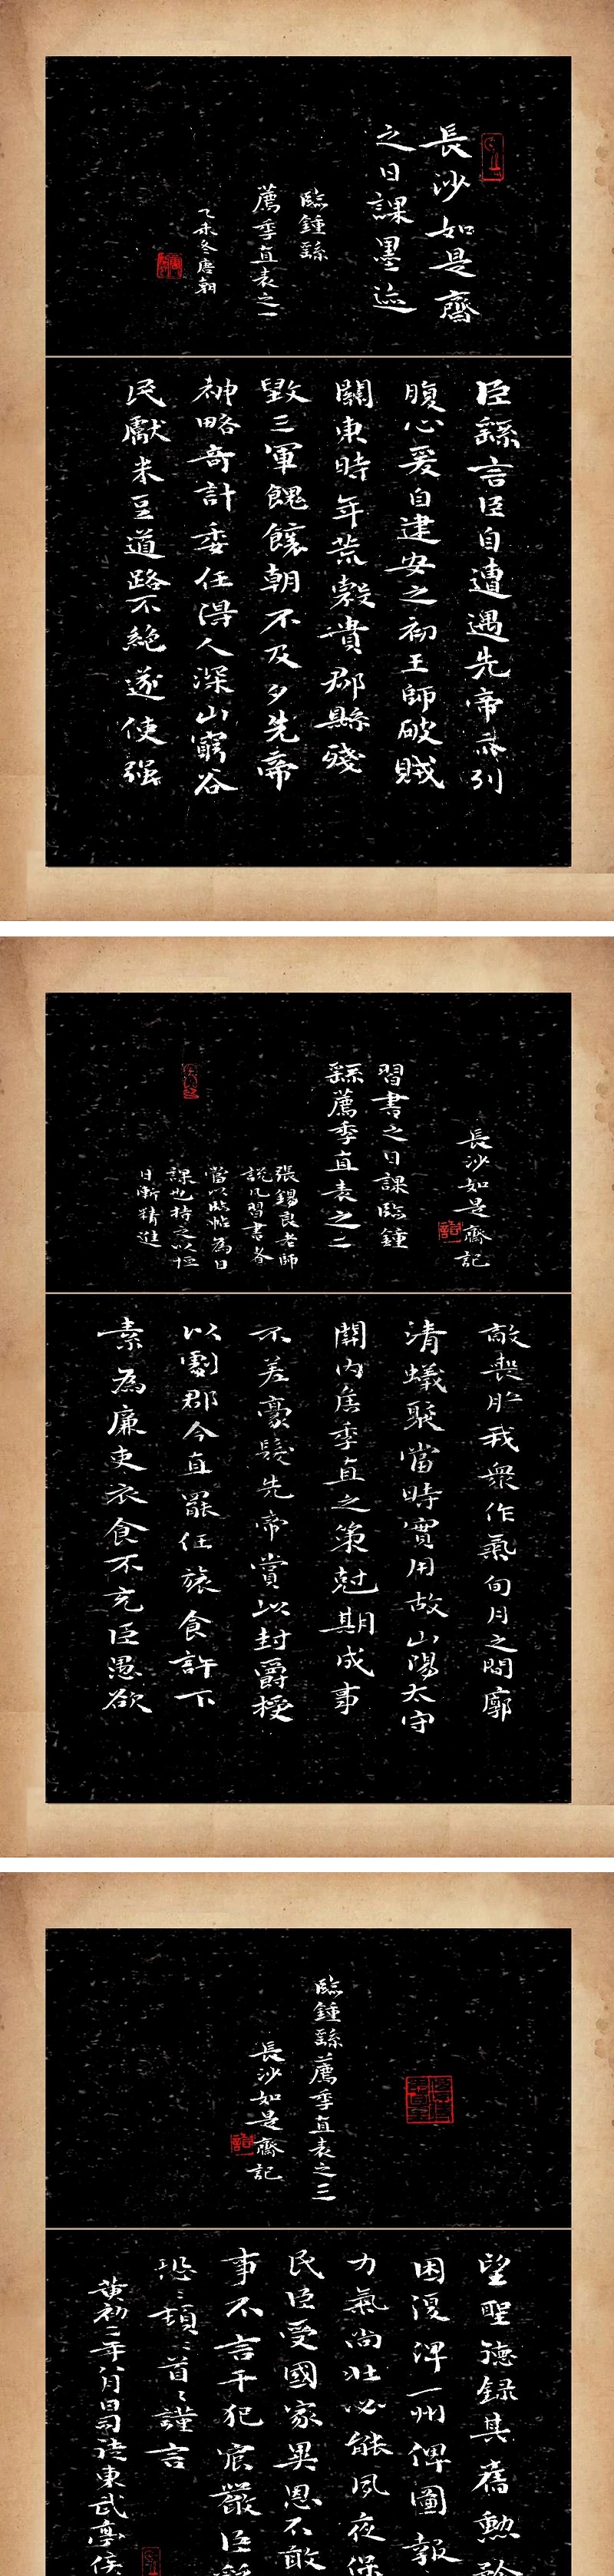 長沙如是齋
之日課墨迹
臨鍾繇
薦季直表之一
乙未冬唐朝
臣繇言臣自遭遇先帝忝列
腹心爰自建安之初王師破賊
關東時年荒穀貴郡縣殘
毀三軍餽饟朝不及夕先帝
神略奇計委任得人深山窮谷
民獻米豆道路不絕遂使强
長沙如是齋記
習書之日課臨鍾
繇薦季直表之二
張錫良老師
說凡習書者
當以臨帖為日
課也持之以恒
日漸精進
敵喪膽我衆作氣旬月之間廓
清蟻聚當時實用故山陽太守
關內侯季直之策尅期成事
不差豪髮先帝賞以封爵授
以劇郡今直罷任旅食許下
素為廉吏衣食不充臣愚欲
臨鍾繇薦季直表之三
長沙如是齋記
望聖德錄其舊勲矜
困復俾一州俾圖報
力氣尚壯必能夙夜保
民臣受國家異恩不敢
事不言干犯宸嚴臣
恐〻頓〻首〻謹言
黃初二年八月日司徒東武亭侯